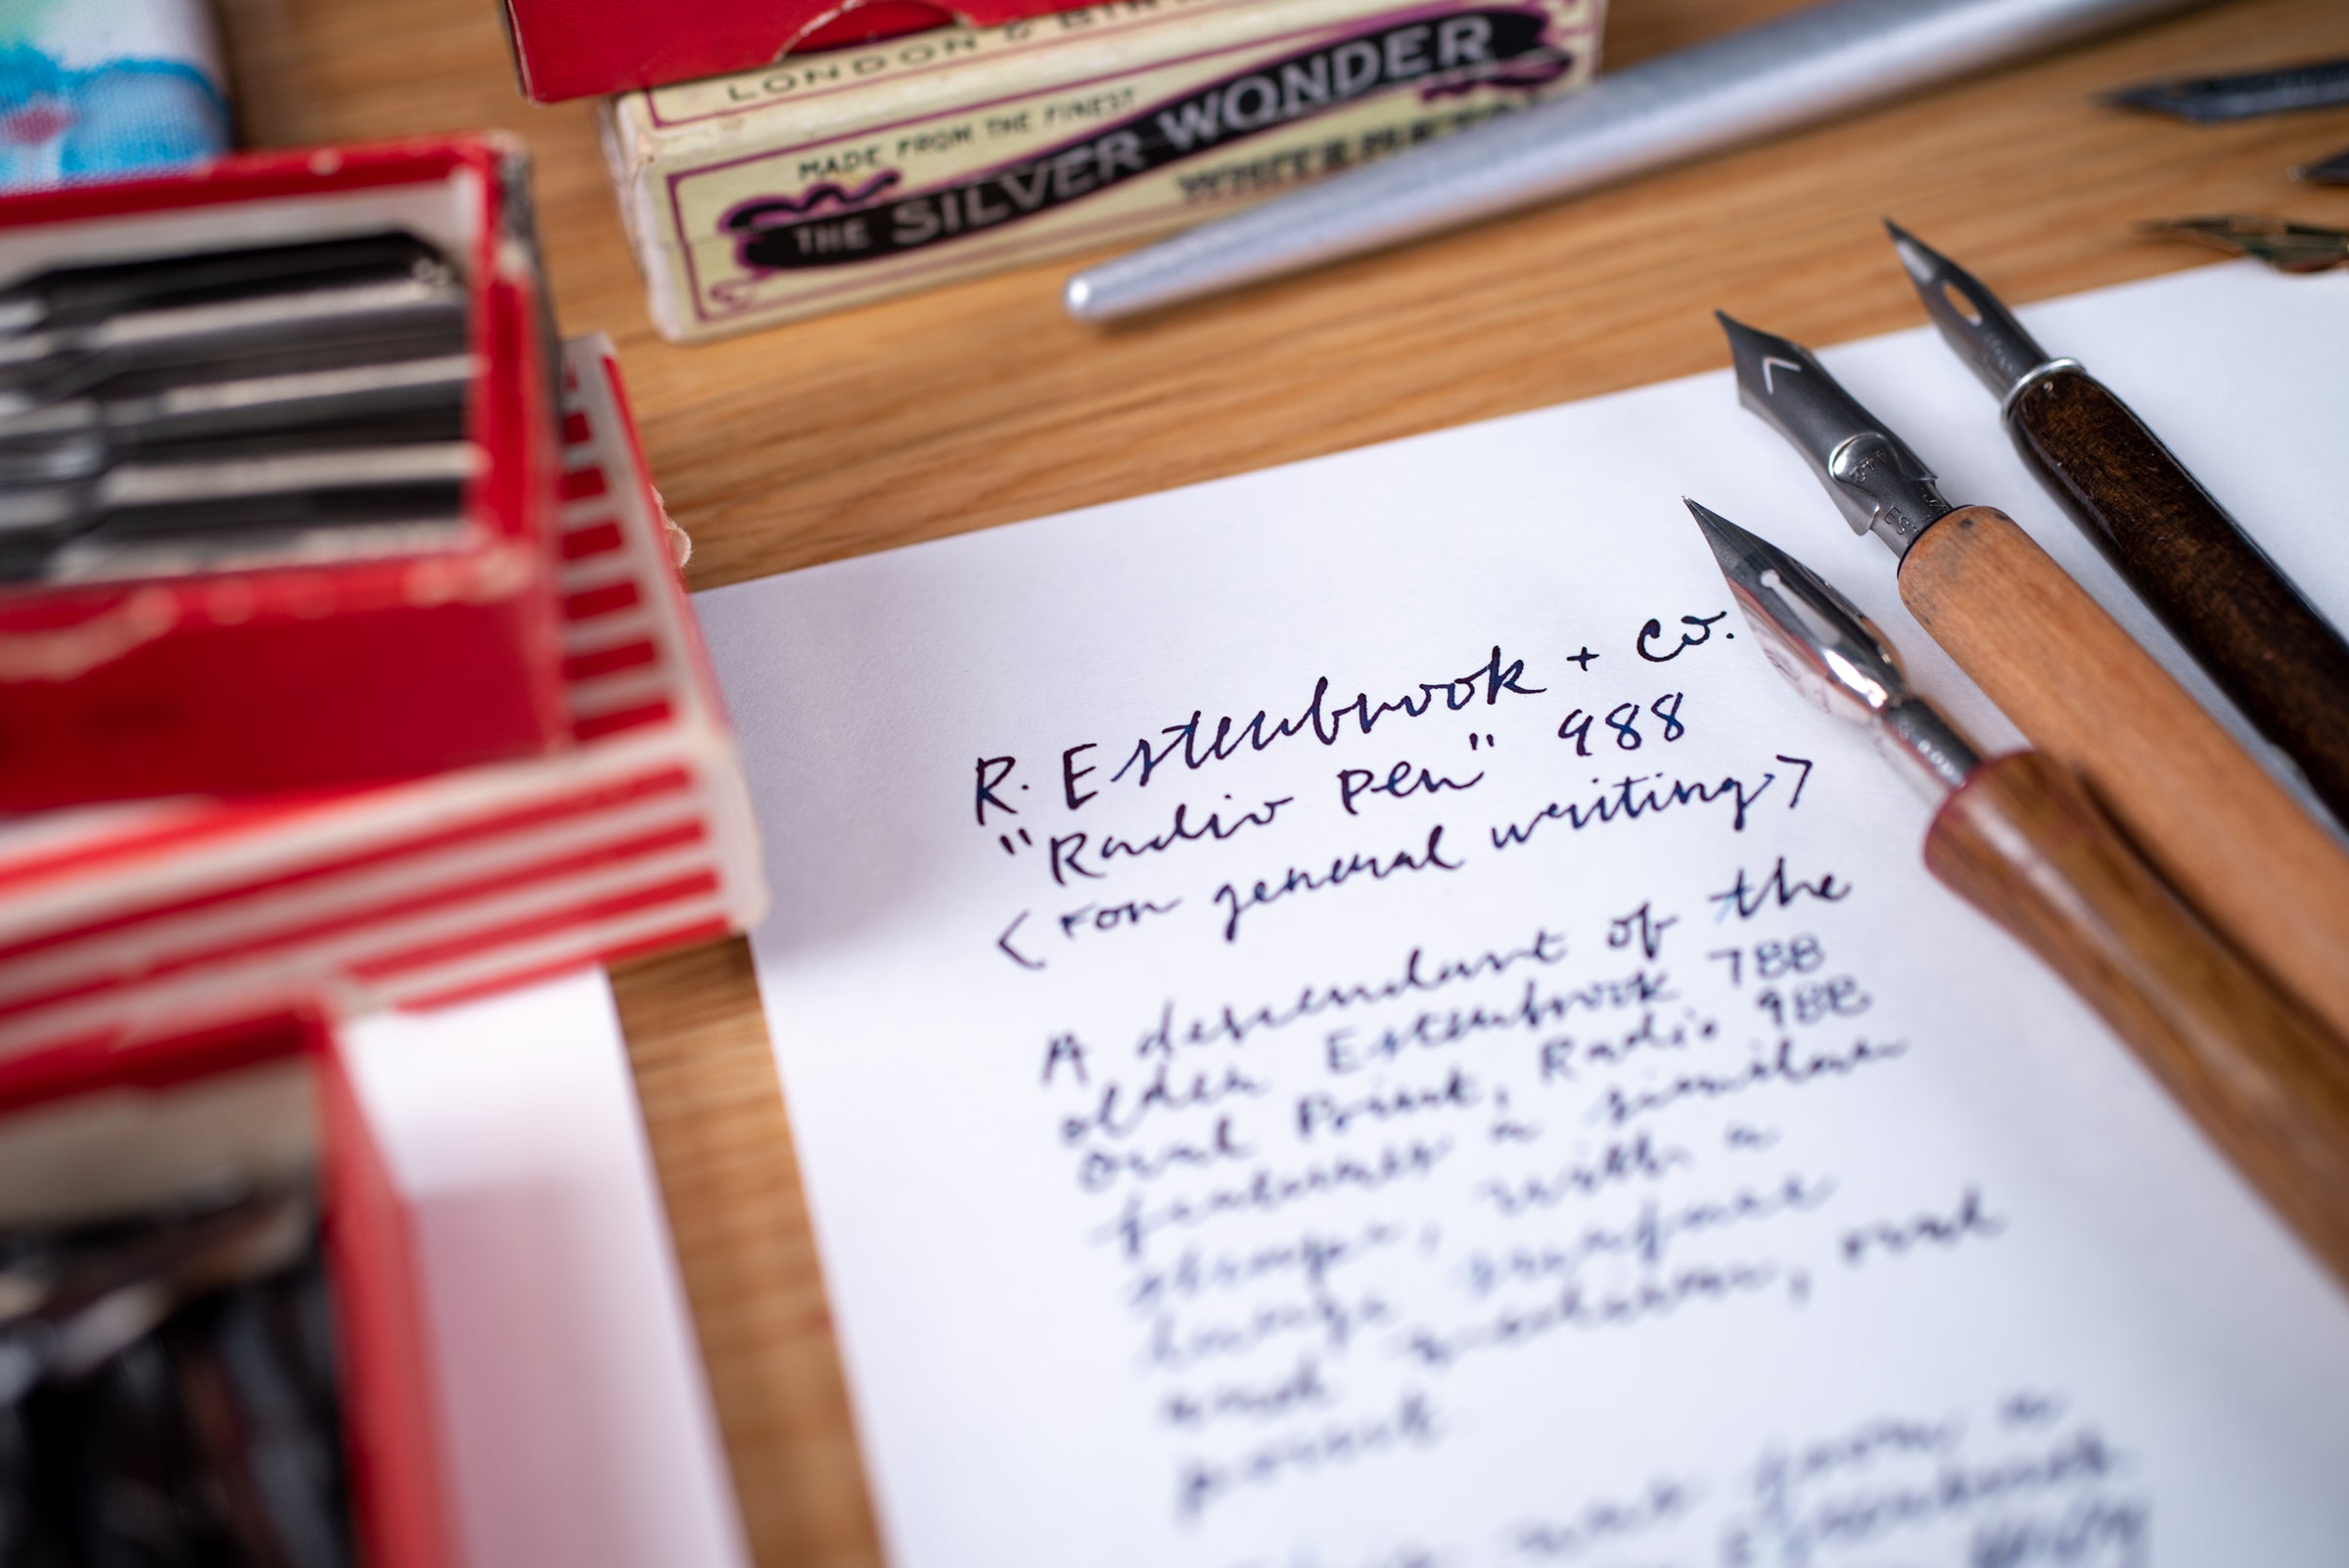 LONDON &
MADE FROM THE FINEST
THE SILVER WONDER
WHITE METAL
R. Esterbrook + Co.
"Radio Pen" 988
<For general writing>
A descendant of the
older Esterbrook 788
Oval Point, Radio 988
features a similar
shape, with a
large surface
and medium, oval
point.